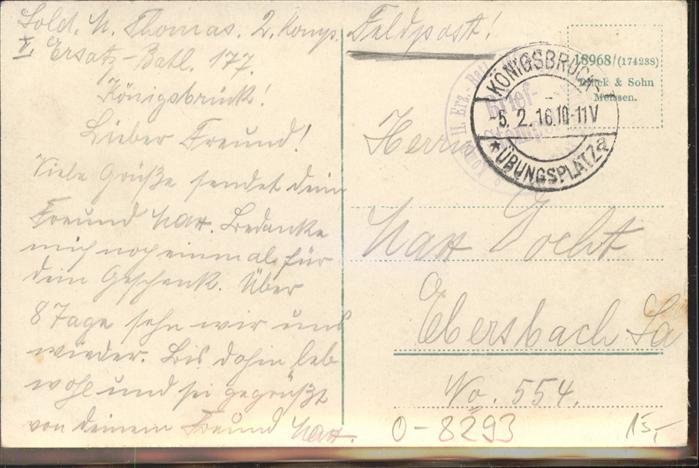 Sold. M. Thomas. 2. Komp.
II. Ersatz-Batl. 177
Königsbrück!
Lieber Freund!
Viele Grüße sendet dein
Freund Max. Bedanke
mich noch einmal für
dein Geschenk. Über
8 Tage sehn wir uns
wieder. Bis dahin leb
wohl und sei gegrüßt
von deinem Freund Max.
Feldpost!
18968/(174238)
Brück & Sohn
Meissen.
KÖNIGSBRÜCK
-5.2.16.10-11V
*ÜBUNGSPLATZ a
II. Ers.-
Brief-
Herrn
Max
Ebersbach Sa
No. 554.
0-8293
15,-